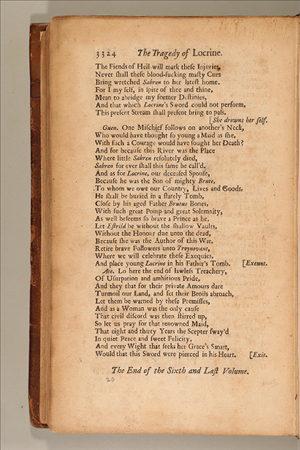 3324 The Tragedy of Locrine.
The Fiends of Hell will mark these Injuries,
Never shall these blood-sucking masty Curs
Bring wretched Sabren to her latest home.
For I my self, in spite of thee and thine,
Mean to abridge my former Destinies,
And that which Locrine's Sword could not perform,
This present Stream shall present bring to pass.
[She drowns her self.
Guen. One Mischief follows on another's Neck,
Who would have thought so young a Maid as she,
With such a Courage would have sought her Death?
And for because this River was the Place
Where little Sabren resolutely died,
Sabren for ever shall this same be call'd.
And as for Locrine, our deceased Spouse,
Because he was the Son of mighty Brute,
To whom we owe our Country, Lives and Goods.
He shall be buried in a stately Tomb,
Close by his aged Father Brutus Bones.
With such great Pomp and great Solemnity,
As well beseems so brave a Prince as he.
Let Estrild lie without the shallow Vaults,
Without the Honour due unto the dead,
Because she was the Author of this War.
Retire brave Followers unto Troynovant,
Where we will celebrate these Exequies,
And place young Locrine in his Father's Tomb. [Exeunt.
Ate. Lo here the end of lawless Treachery,
Of Usurpation and ambitious Pride,
And they that for their private Amours dare
Turmoil our Land, and set their Broils abroach,
Let them be warned by these Premisses,
And as a Woman was the only cause
That civil discord was then stirred up,
So let us pray for that renowned Maid,
That eight and thirty Years the Scepter sway'd
In quiet Peace and sweet Felicity.
And every Wight that seeks her Grace's Smart,
Would that this Sword were pierced in his Heart. [Exit.
The End of the Sixth and Last Volume.